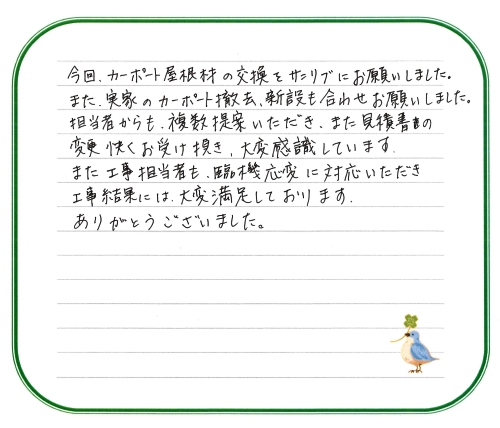 今回、カーポート屋根材の交換をサンリブにお願いしました。
また、実家のカーポート撤去、新設も合わせお願いしました。
担当者からも、複数提案いただき、また見積書の
変更快くお受け頂き、大変感識しています。
また工事担当者も、臨機応変に対応いただき
工事結果には、大変満足しております。
ありがとうございました。